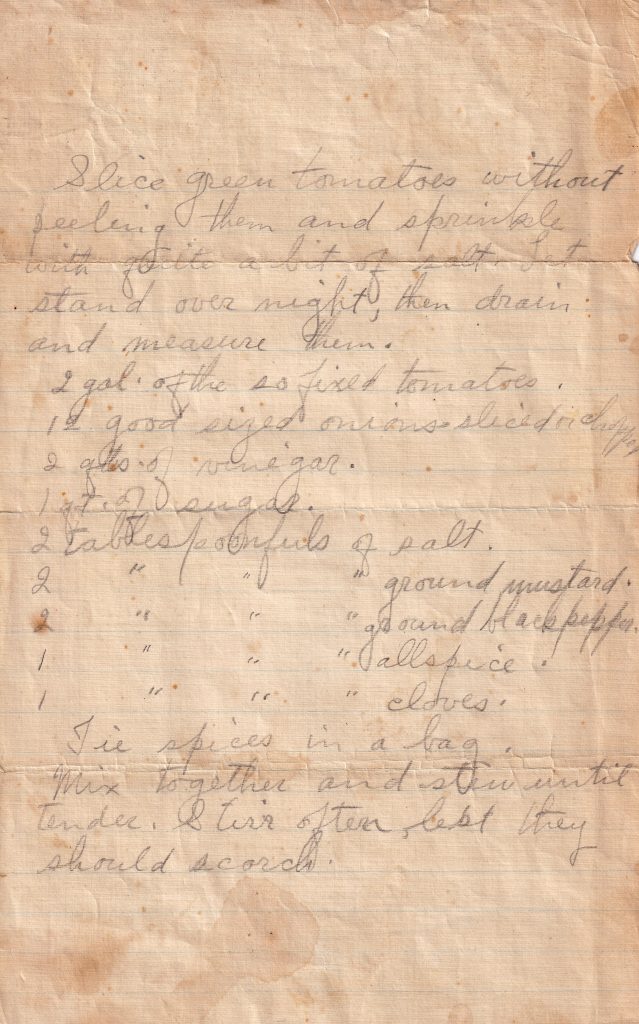 Slice green tomatoes without
peeling them and sprinkle
with quite a bit of salt. Let
stand over night, then drain
and measure them.
2 gal. of the so fixed tomatoes.
12 good sized onions sliced or
2 qts of vinegar.
1 qt. of sugar.
2 tablespoonfuls of salt.
2 " " " ground mustard.
2 " " " ground black pepper.
1 " " " allspice.
1 " " " cloves.
Tie spices in a bag.
Mix together and stew until
tender. Stirr often lest they
should scorch.